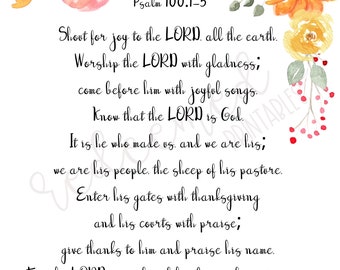 Psalm 100:1-5
Shout for joy to the LORD, all the earth.
Worship the LORD with gladness;
come before him with joyful songs.
Know that the LORD is God.
It is he who made us, and we are his;
we are his people, the sheep of his pasture.
Enter his gates with thanksgiving
and his courts with praise;
give thanks to him and praise his name.